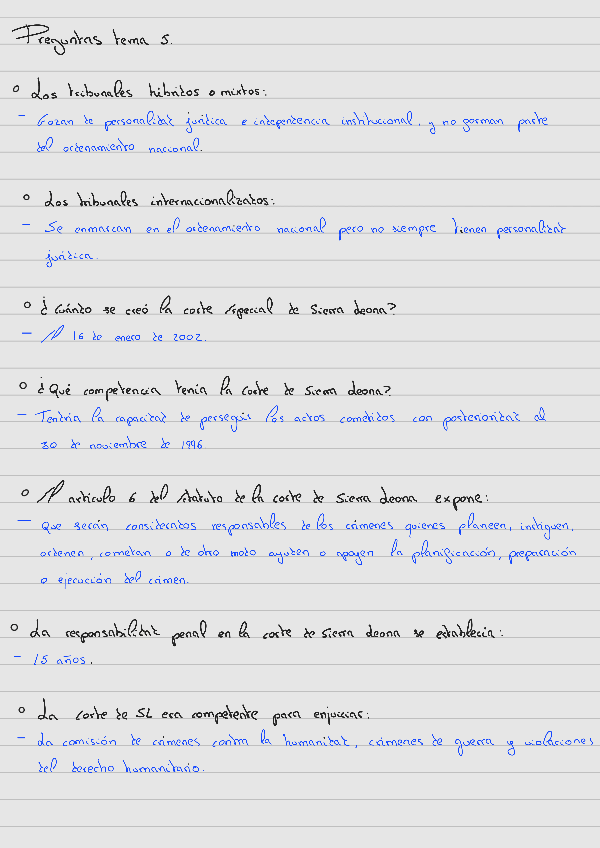 Preguntas tema 5.
Los tribunales híbridos o mixtos:
- Gozan de personalidad jurídica e independencia institucional, y no forman parte
del ordenamiento nacional.
Los tribunales internacionalizados:
- Se enmarcan en el ordenamiento nacional pero no siempre tienen personalidad
jurídica.
¿Cuándo se creó la corte Especial de Sierra Leona?
- El 16 de enero de 2002.
¿Qué competencia tenía la corte de Sierra Leona?
- Tendría la capacidad de perseguir los actos cometidos con posterioridad al
30 de noviembre de 1996
El artículo 6 del Estatuto de la corte de Sierra Leona expone:
- Que serán considerados responsables de los crímenes quienes planeen, instiguen,
ordenen, cometan o de otro modo ayuden o apoyen la planificación, preparación
o ejecución del crimen.
La responsabilidad penal en la corte de Sierra Leona se establecía:
- 15 años.
La corte de SL era competente para enjuiciar:
- La comisión de crímenes contra la humanidad, crímenes de guerra y violaciones
del derecho humanitario.